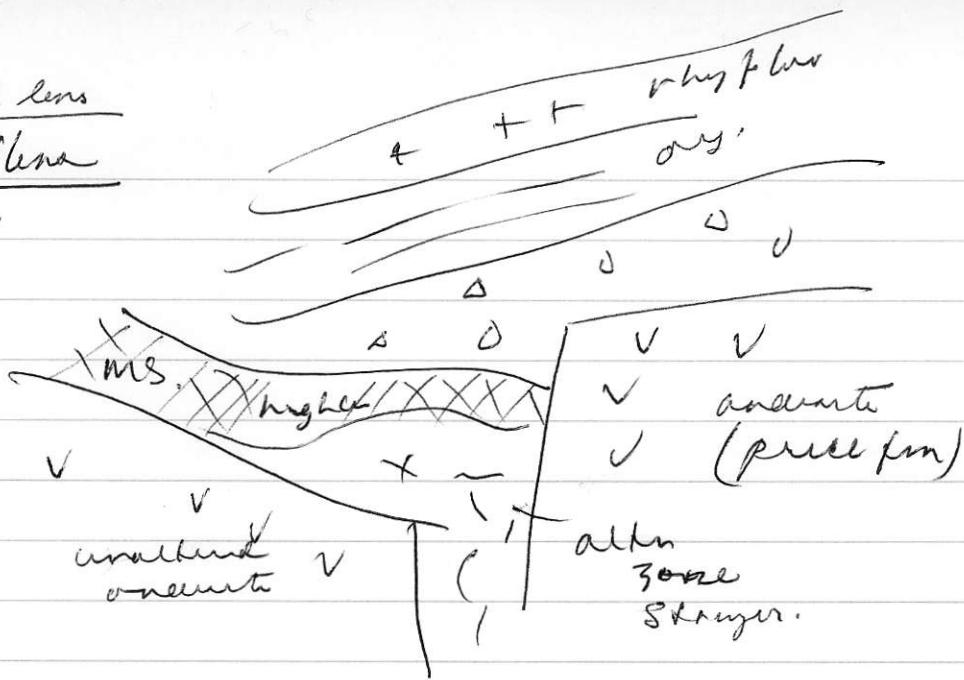 lens
lens
rhy flow
arg.
ms.
higher
andesite
(price fm)
unaltered
andesite
altn
zone
stringer.